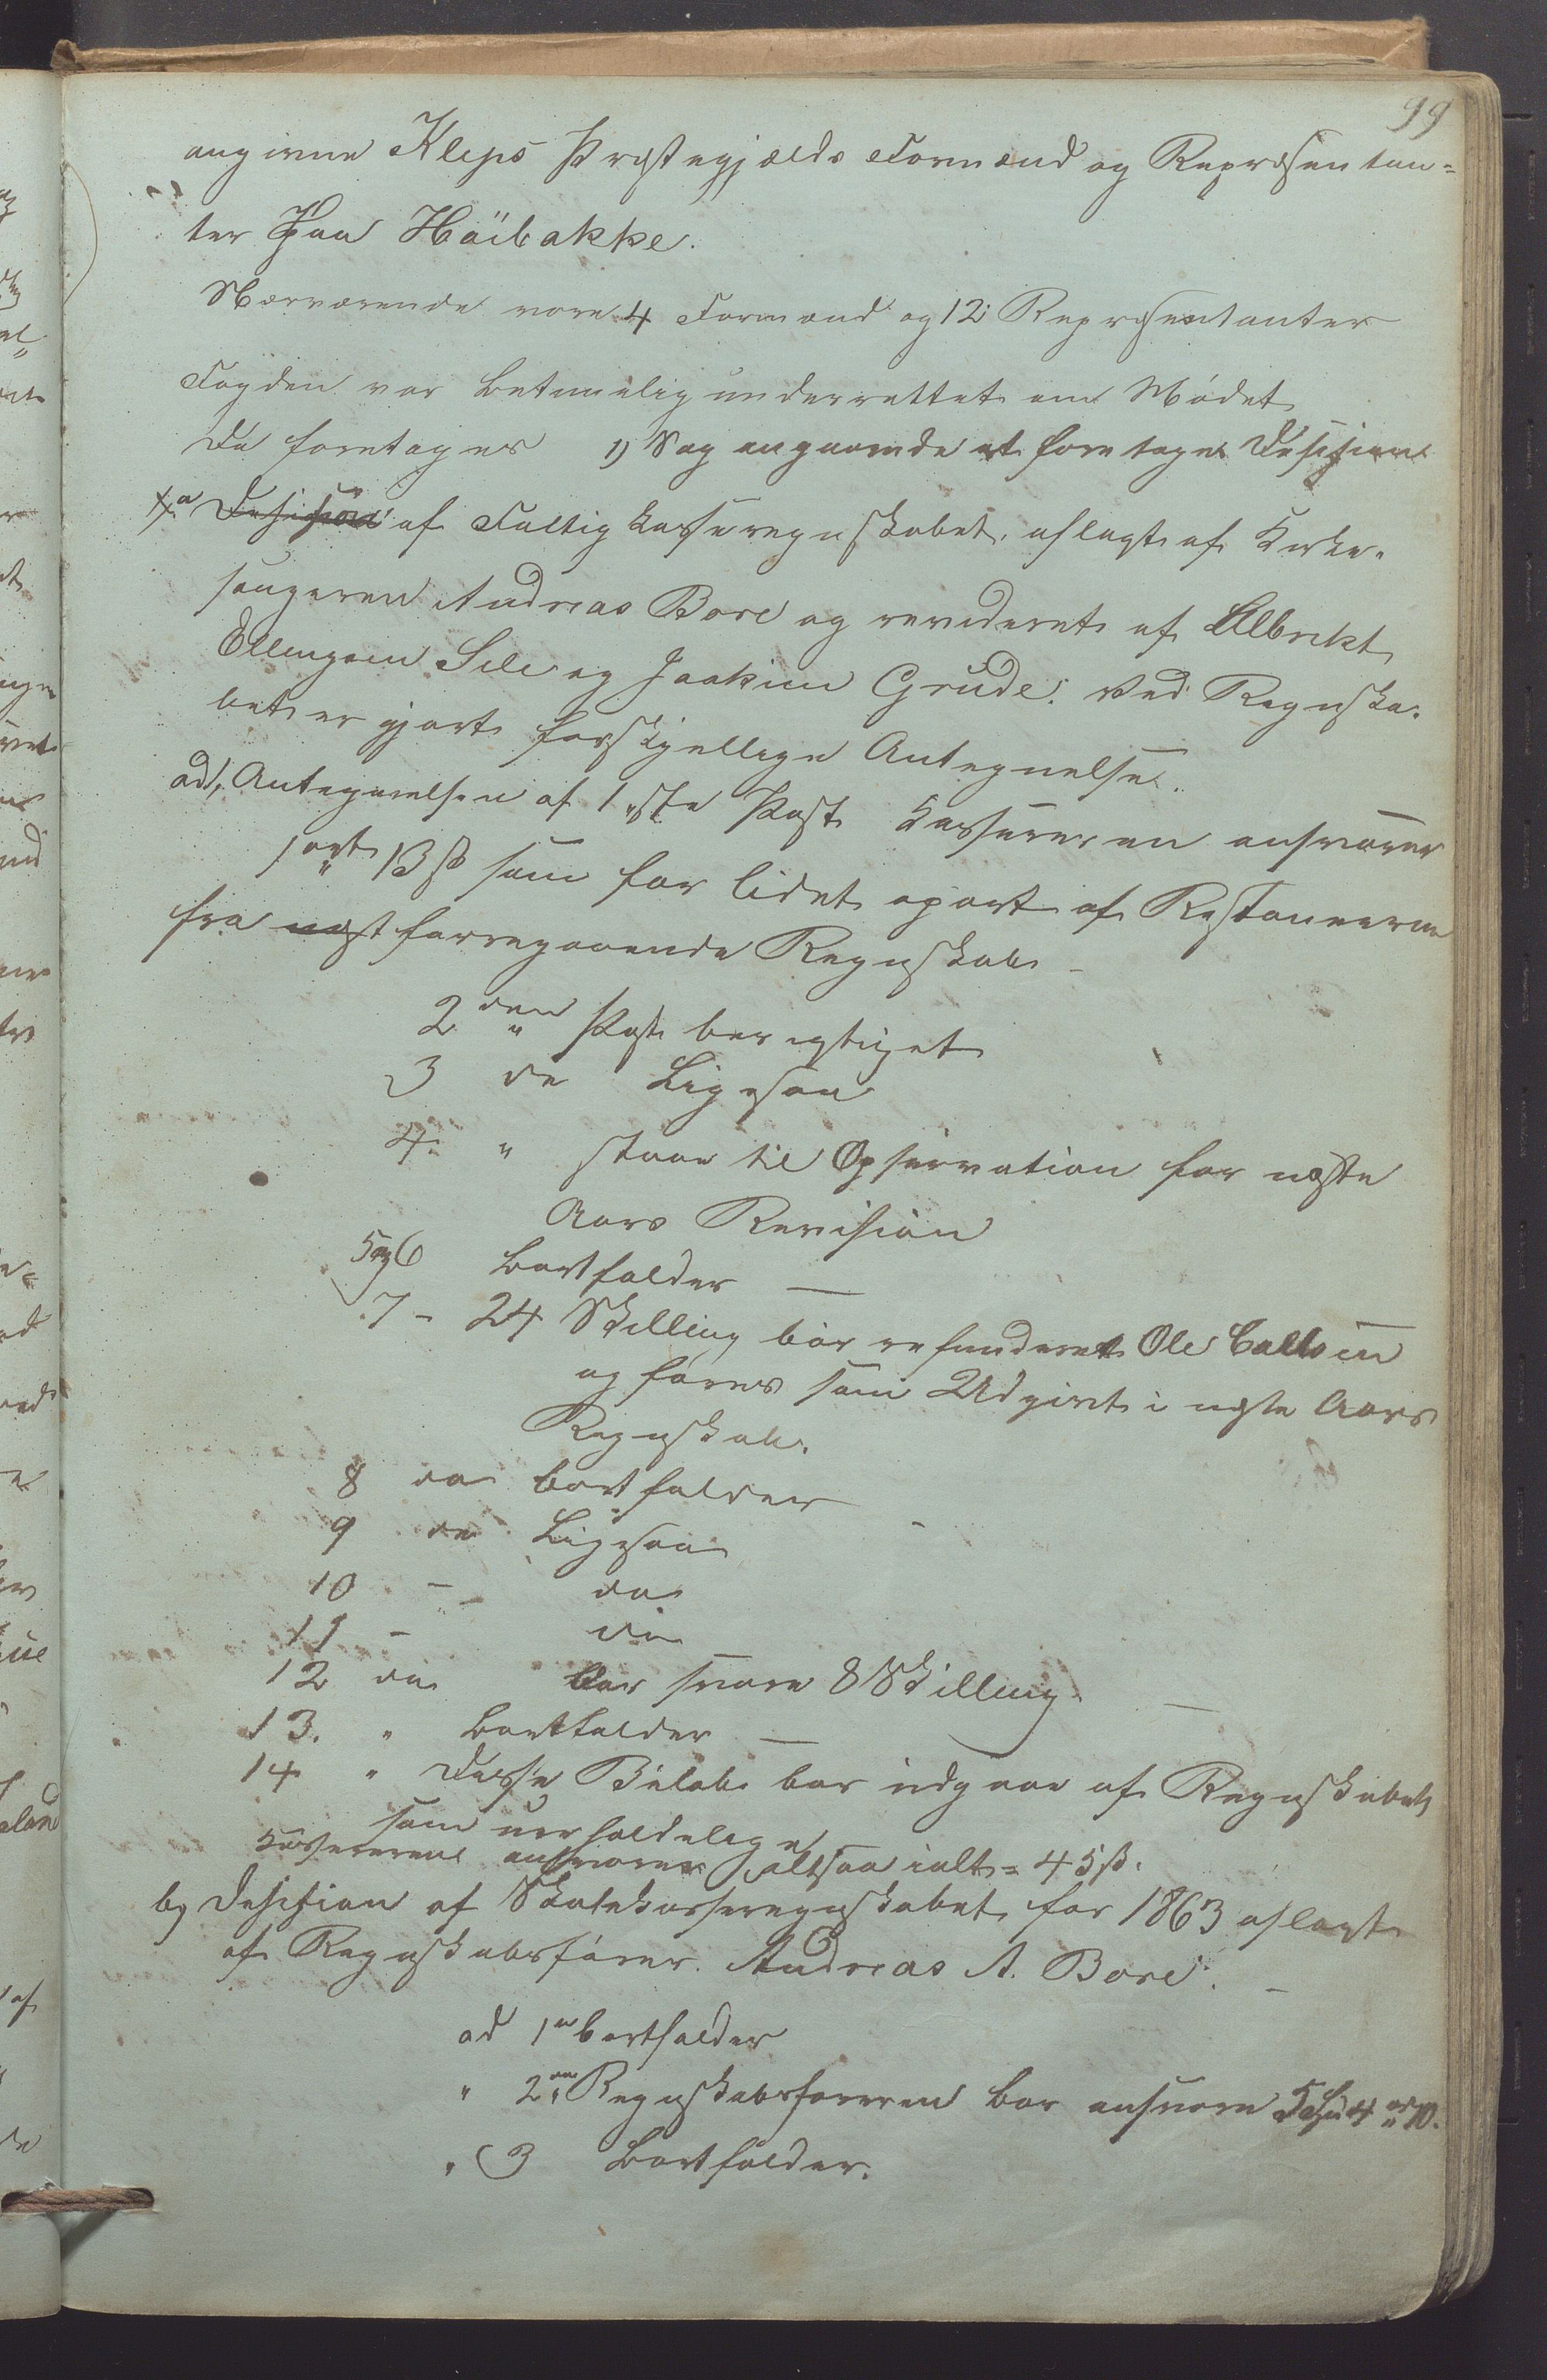 99
angivne Kleps Præstegjælds Formænd og Repræsentan=
ter paa Höibakke.
Nærværende vare 4 Formænd og 12 Repræsentanter
Fogden var betimelig underrettet om Mödet
Da foretages 1) Sag angaaende at foretage Desision
a Desision af Fattigkasseregnskabet, aflagt af Kirke-
sangeren Andreas Bore og revideret af Albrekt
Ellingsen Sele og Joakim Grude. Ved Regnska-
bet er gjort forskjellige Antegnelser.
ad 1, Antegnelsen af 1ste Post Kassereren ansvarer
1 ort 13 ß som for lidet opört af Restancerne
fra næst forregaaende Regnskab –
2den Post berigtiget
3 de Ligesaa
4. " staar til Opservation for næste
Aars Revision
5 og 6 bortfalder —
7 – 24 Skilling bör refunderet Ole
og föres som Udgivt i neste Aars
Regnskab.
8 de bortfalder
9 de Ligesaa
10 – do
11 – do
12 de bör svare 8 Skilling. —
13. " bortfalder —
14 " Desse Belöb bör udgaae af Regnskabet
som uerholdelige
Kassereren ansvarer altsaa ialt = 45 ß.
b) Desision af Skolekasseregnskabet for 1863 aflagt
af Regnskabsförer Andreas A. Bore. –
ad 1 bortfalder
" 2den Regnskabsföreren bör ansvare
" 3 Bortfalder.